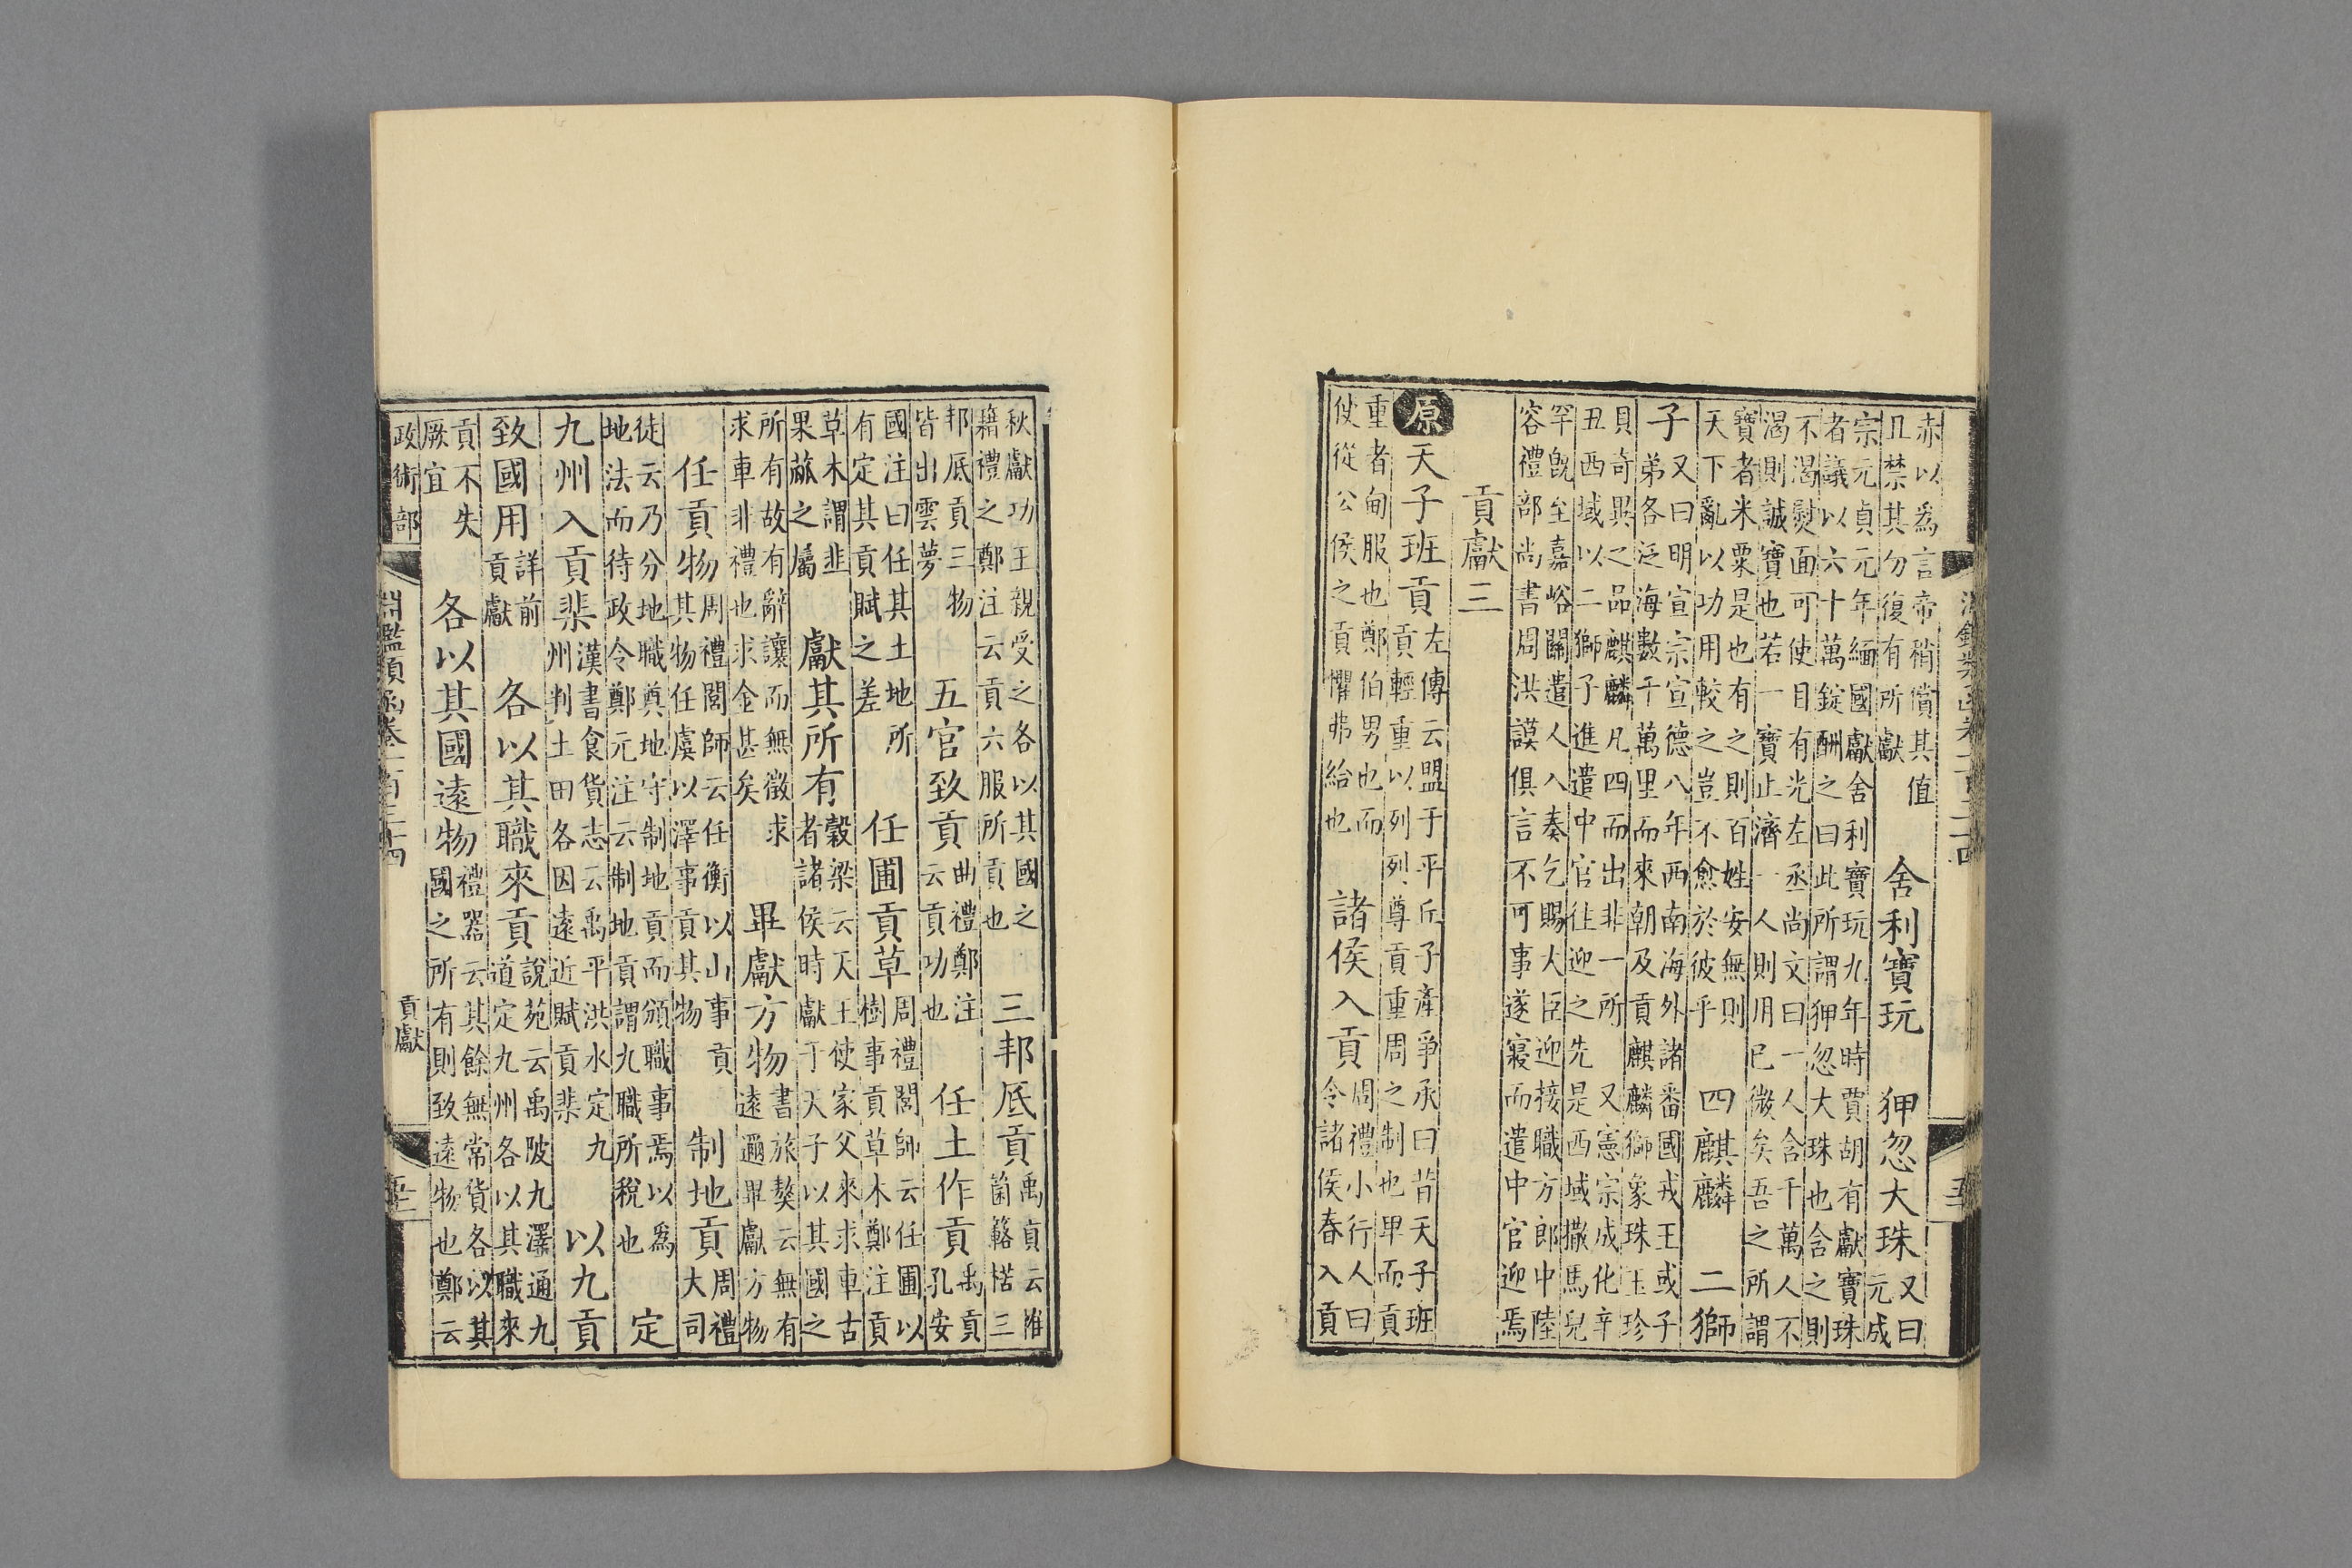 赤以為言帝稍償其值且禁其勿復有所獻 舍利寶玩 狎忽大珠 又曰元成
宗元貞元年緬國獻舍利寶玩九年時賈胡有獻寶珠者議以六十萬錠酬之曰此所謂狎忽大珠也含之則
不渴熨面可使目有光左丞尚文曰一人含千萬人不渴則誠寶也若一寶止濟一人則用已微矣吾之所謂
寶者米粟是也有之則百姓安無則天下亂以功用較之豈不愈於彼乎 四麒麟 二獅
子 又曰明宣宗宣德八年西南海外諸番國戎王或子弟各泛海數千萬里而來朝及貢麒麟獅象珠玉珍
貝奇異之品麒麟凡四而出非一所 又憲宗成化辛丑西域以二獅子進遣中官往迎之先是西域撒馬兒
罕旣至嘉峪關遣人入奏乞賜大臣迎接職方郎中陸容禮部尚書周洪謨俱言不可事遂寢而遣中官迎焉
貢獻三
原 天子班貢 左傳云盟于平丘子產爭承曰昔天子班貢輕重以列列尊貢重周之制也卑而貢
重者甸服也鄭伯男也而使從公侯之貢懼弗給也 諸侯入貢 周禮小行人曰令諸侯春入貢
秋獻功王親受之各以其國之籍禮之鄭注云貢六服所貢也 三邦底貢 禹貢云惟箘簵楛三
邦底貢三物皆出雲夢 五官致貢 曲禮鄭注云貢功也 任土作貢 禹貢孔安
國注曰任其土地所有定其貢賦之差 任圃貢草 周禮閭師云任圃以樹事貢草木鄭注貢
草木謂韭果蓏之屬 獻其所有 穀梁云天王使家父來求車古者諸侯時獻于天子以其國之
所有故有辭讓而無徵求求車非禮也求金甚矣 畢獻方物 書旅獒云無有遠邇畢獻方物
任貢物 周禮閭師云任衡以山事貢其物任虞以澤事貢其物 制地貢 周禮大司
徒云乃分地職奠地守制地貢而頒職事焉以為地法而待政令鄭元注云制地貢謂九職所稅也 定
九州入貢棐 漢書食貨志云禹平洪水定九州判土田各因遠近賦貢棐 以九貢
致國用 詳前貢獻 各以其職來貢 說苑云禹陂九澤通九道定九州各以其職來
貢不失厥宜 各以其國遠物 禮器云其餘無常貨各以其國之所有則致遠物也鄭云
政術部 淵鑑類函卷一百三十四 貢獻